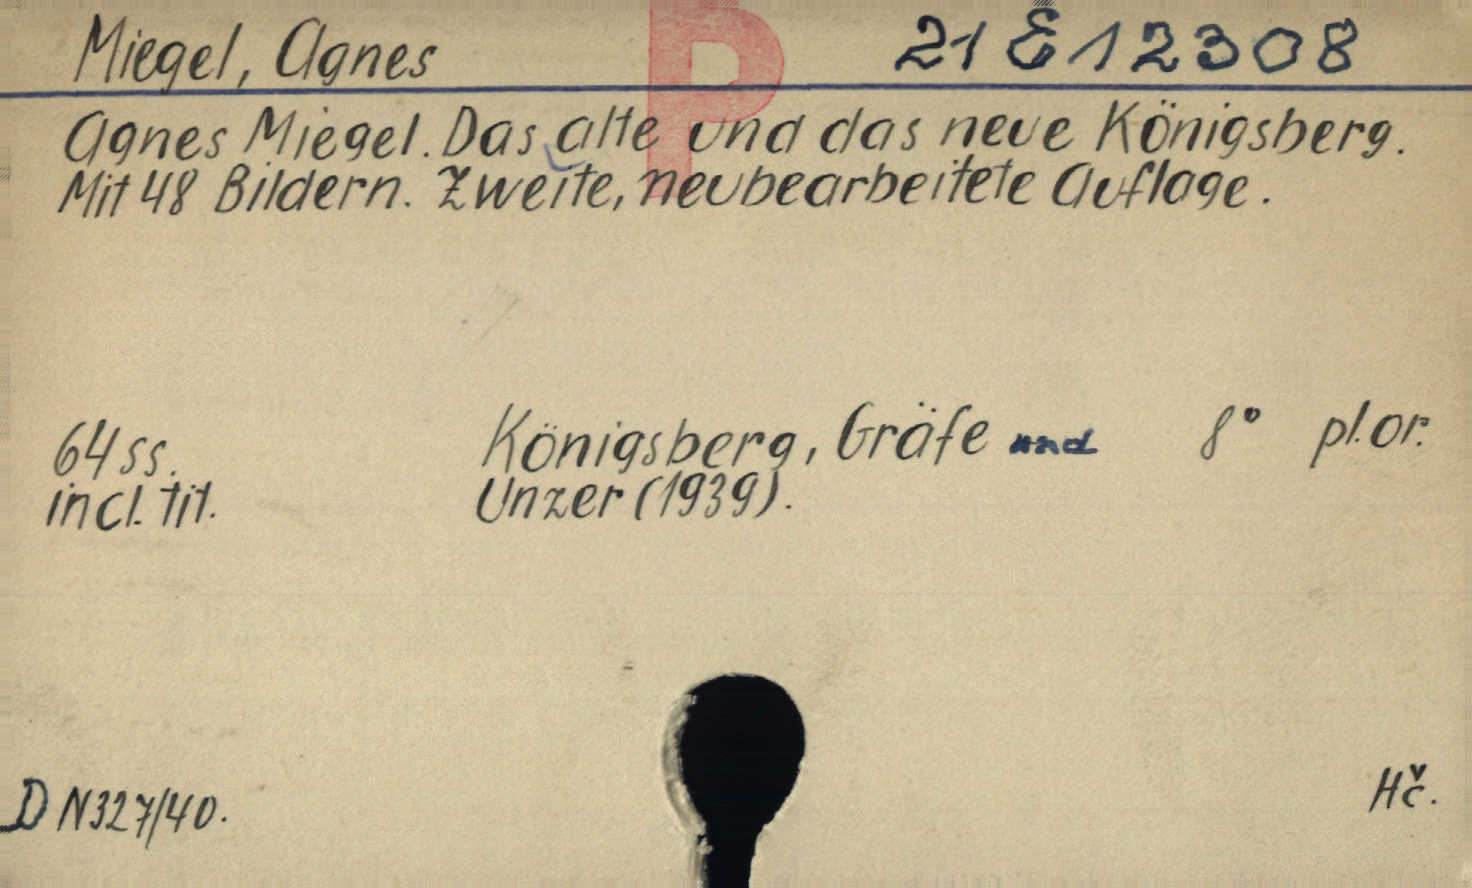 Miegel, Agnes 21 E 12308
P
Agnes Miegel. Das alte und das neue Königsberg.
Mit 48 Bildern. Zweite, neubearbeitete Auflage.
64 ss. Königsberg, Gräfe und 8° pl. or.
incl. tit. Unzer (1939).
D N327/40. Hč.